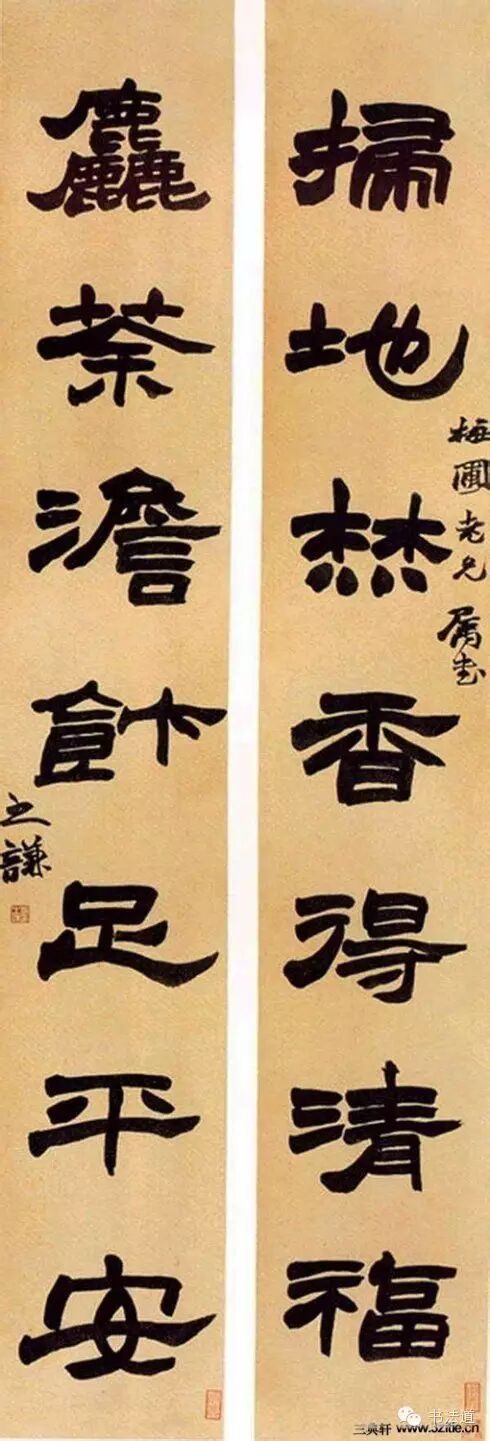 掃地焚香得清福
梅圃老兄属書
麤茶澹飰足平安
之謙
三典轩 www.3zitie.cn
书法道